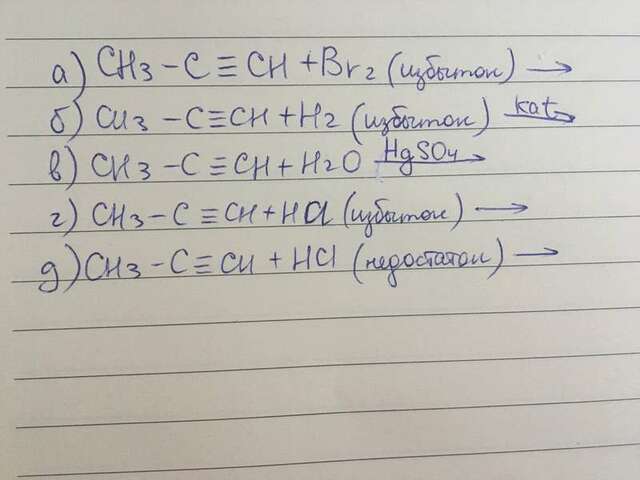 а) CH3 – C ≡ CH + Br2 (избыток) →
б) CH3 – C ≡ CH + H2 (избыток) kat→
в) CH3 – C ≡ CH + H2O HgSO4→
г) CH3 – C ≡ CH + HCl (избыток) →
д) CH3 – C ≡ CH + HCl (недостаток) →